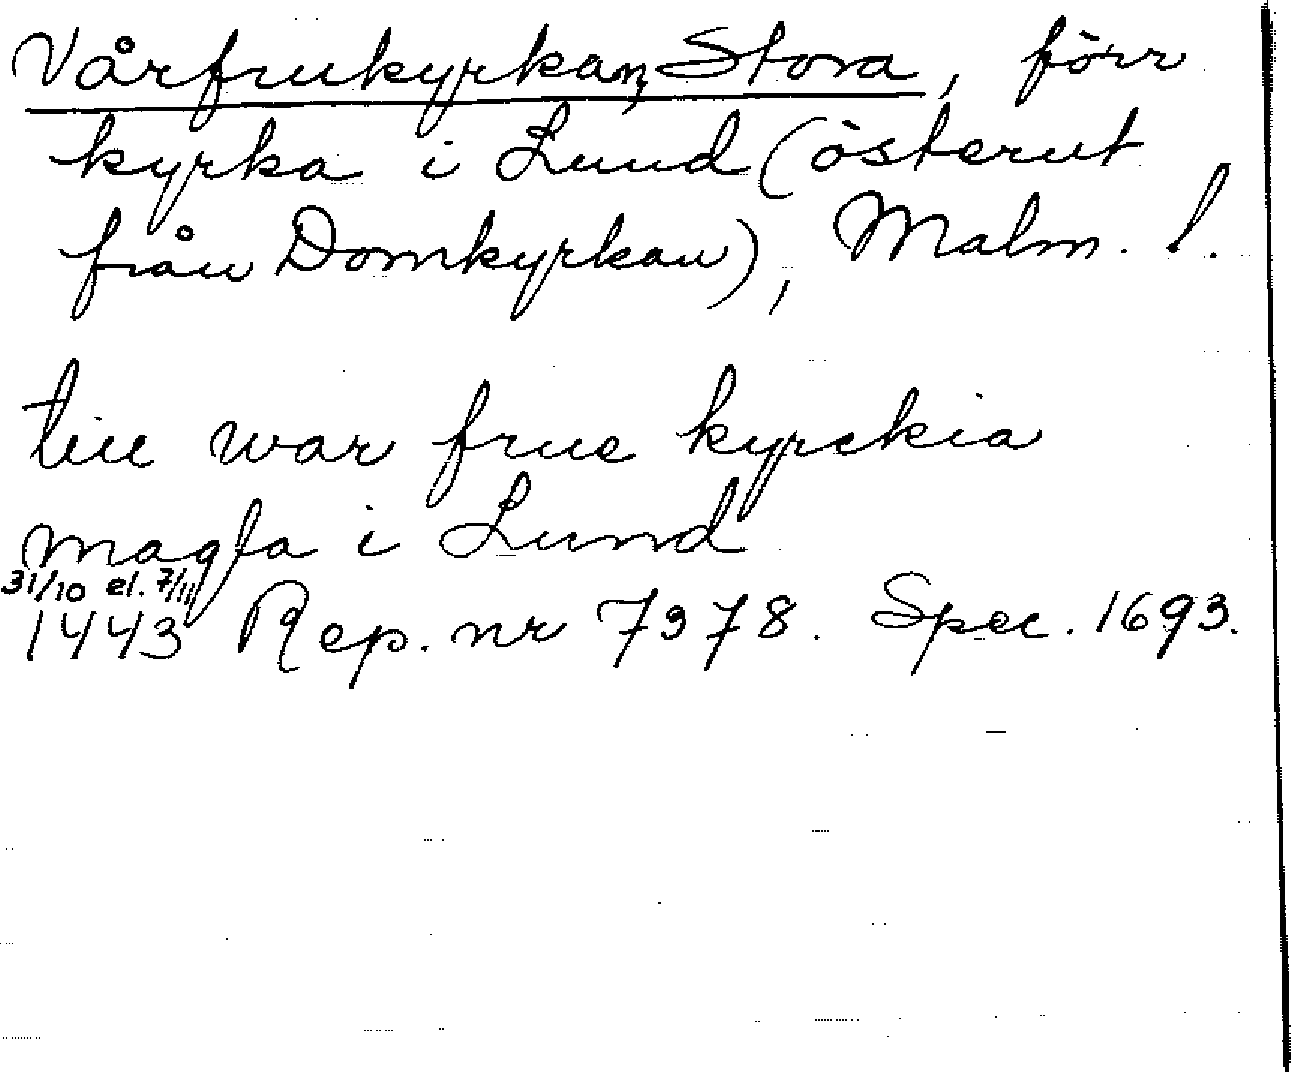 Vårfrukyrkan, Stora, förr
kyrka i Lund (österut
från Domkyrkan), Malm. l.
till war frue kyrckia
magla i Lund
31/10 el. 7/11
1443 Rep. nr 7378. Spec. 1693.